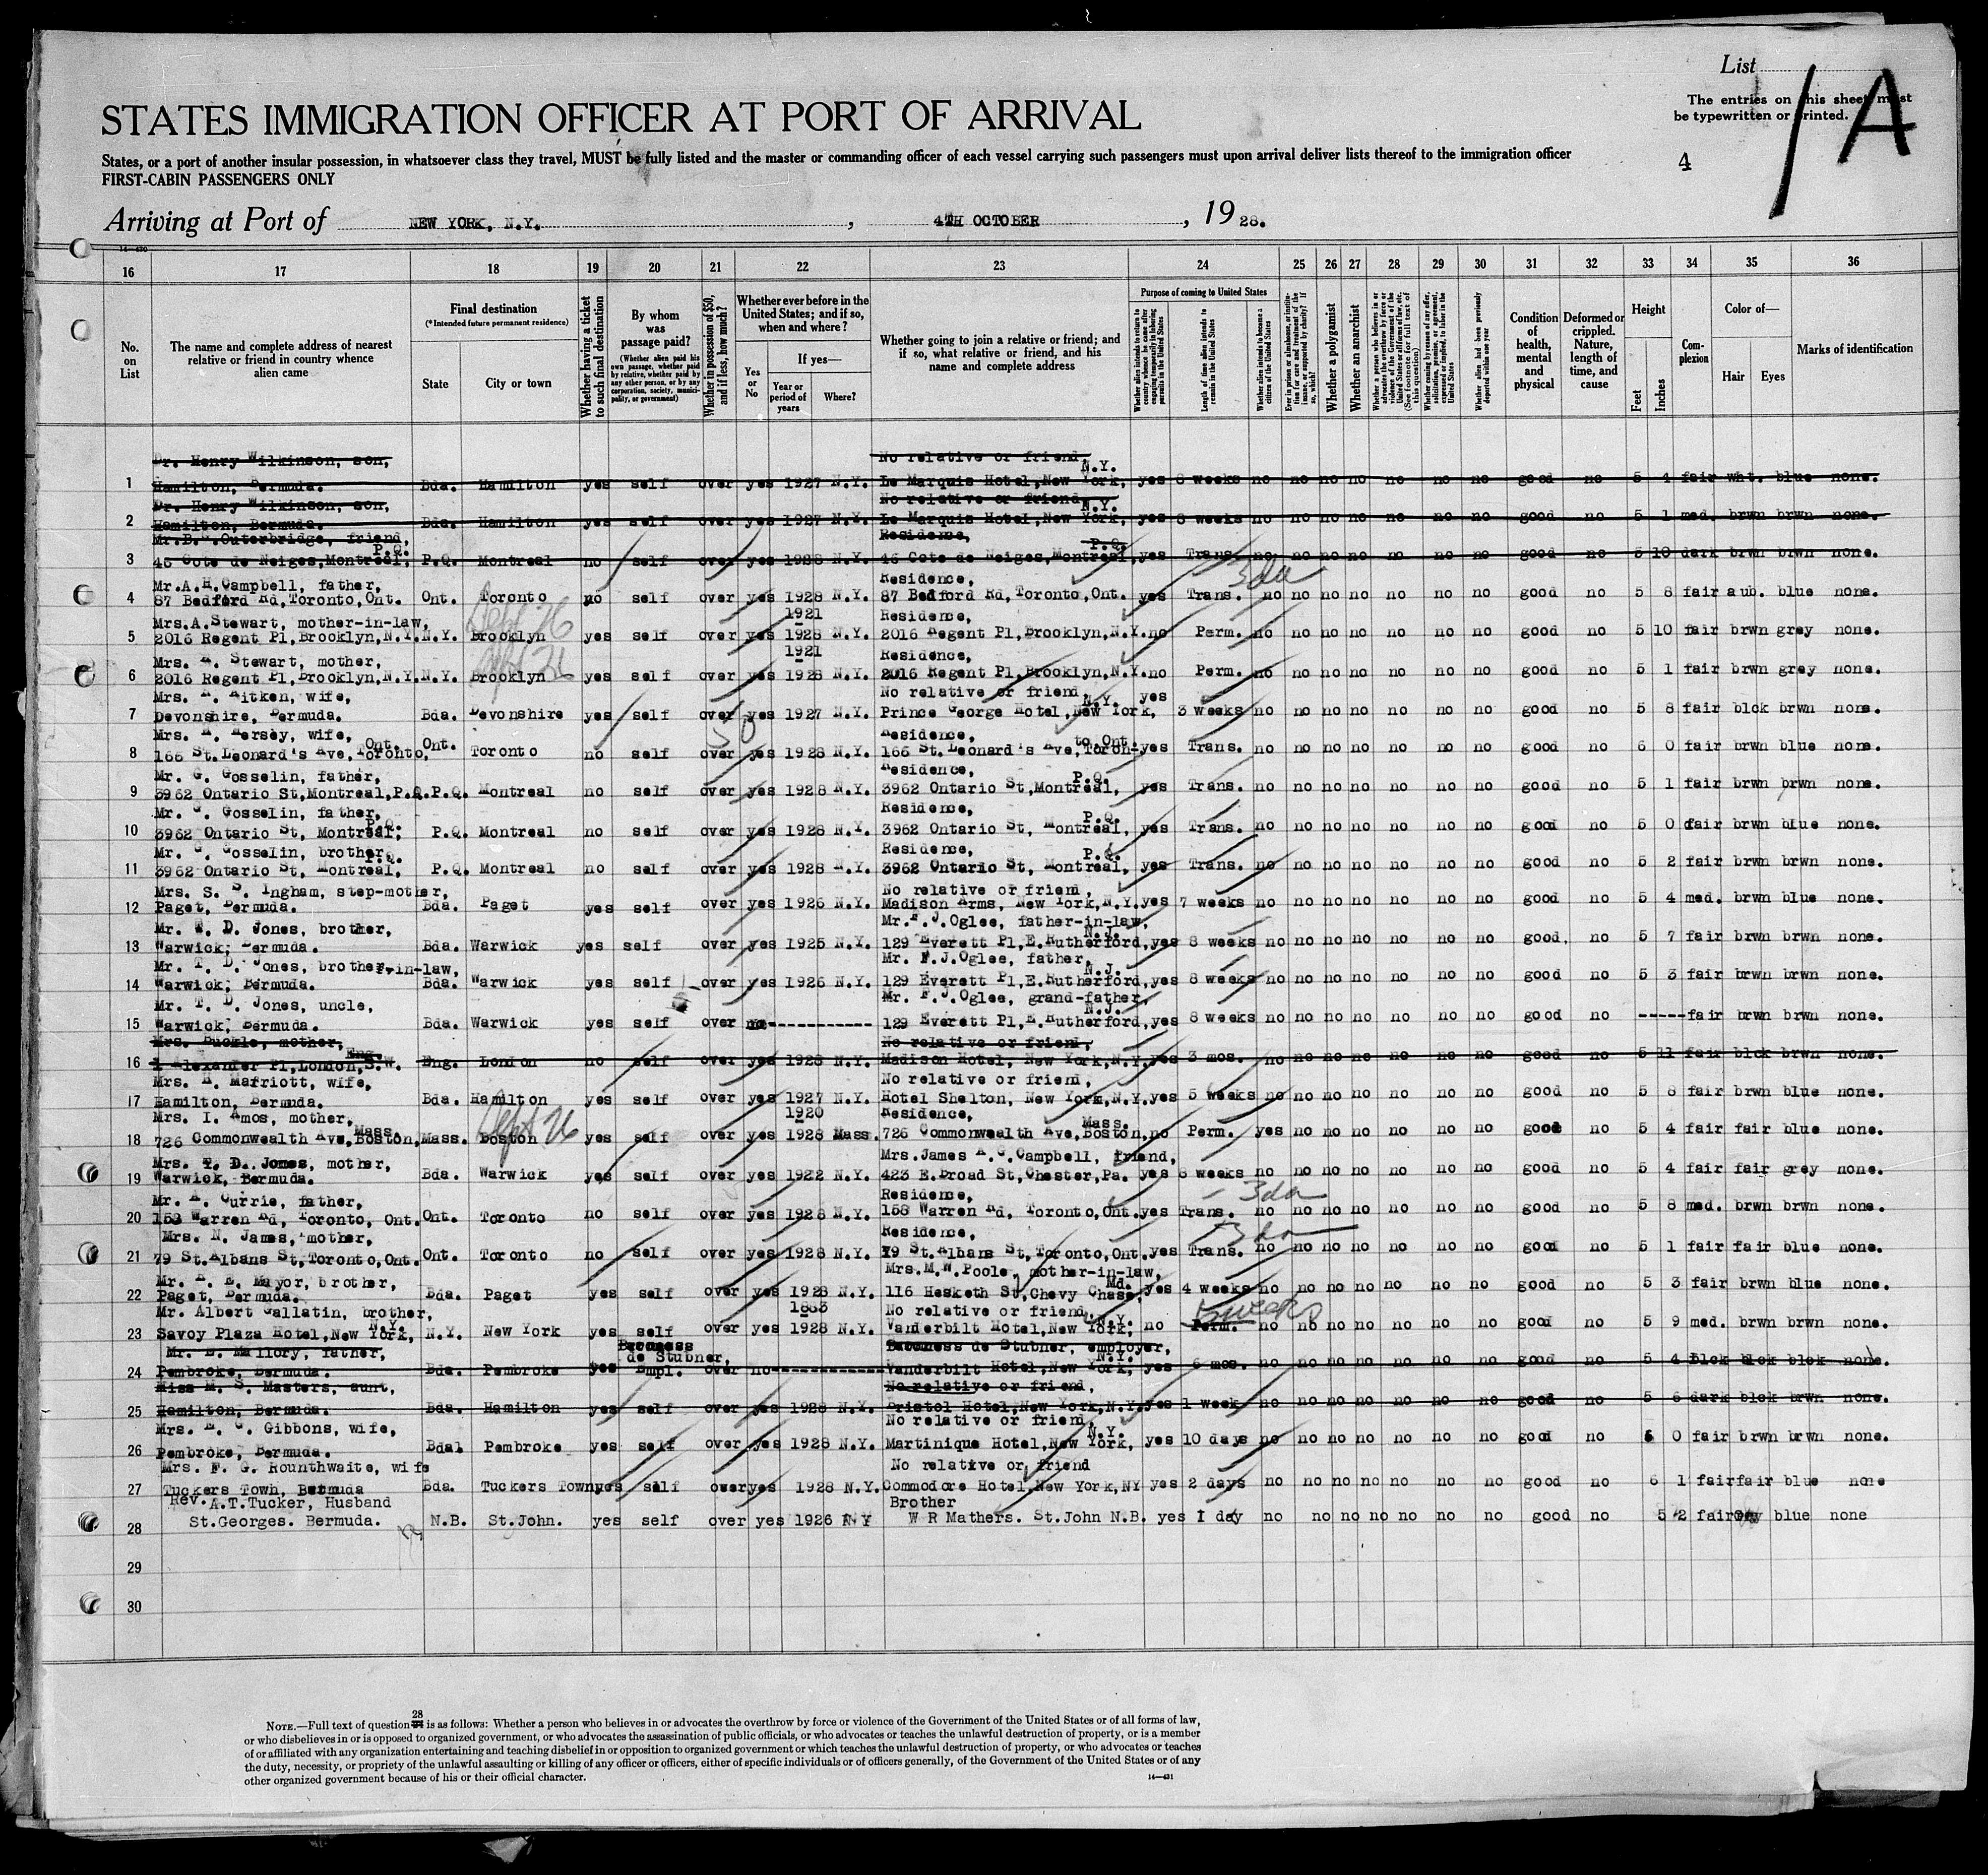 List
1A
The entries on this sheet must
be typewritten or printed.
4
STATES IMMIGRATION OFFICER AT PORT OF ARRIVAL
States, or a port of another insular possession, in whatsoever class they travel, MUST be fully listed and the master or commanding officer of each vessel carrying such passengers must upon arrival deliver lists thereof to the immigration officer
FIRST-CABIN PASSENGERS ONLY
Arriving at Port of NEW YORK, N.Y. , 4TH OCTOBER , 19 28.
14—430
16 17 18 19 20 21 22 23 24 25 26 27 28 29 30 31 32 33 34 35 36
No. on List
The name and complete address of nearest relative or friend in country whence alien came
Final destination
(*Intended future permanent residence)
State
City or town
Whether having a ticket to such final destination
By whom was passage paid?
(Whether alien paid his own passage, whether paid by relative, whether paid by any other person, or by any corporation, society, municipality, or government)
Whether in possession of $50, and if less, how much?
Whether ever before in the United States; and if so, when and where?
Yes or No
If yes—
Year or period of years
Where?
Whether going to join a relative or friend; and if so, what relative or friend, and his name and complete address
Purpose of coming to United States
Whether alien intends to return to country whence he came after engaging temporarily in laboring pursuits in the United States
Length of time alien intends to remain in the United States
Whether alien intends to become a citizen of the United States
Ever in prison or almshouse, or institution for care and treatment of the insane, or supported by charity? If so, which?
Whether a polygamist
Whether an anarchist
Whether a person who believes in or advocates the overthrow by force or violence of the Government of the United States or all forms of law, etc. (See footnote for full text of this question)
Whether coming by reason of any offer, solicitation, promise, or agreement, expressed or implied, to labor in the United States
Whether alien had been previously deported within one year
Condition of health, mental and physical
Deformed or crippled. Nature, length of time, and cause
Height
Feet
Inches
Complexion
Color of—
Hair
Eyes
Marks of identification
Dr. Henry Wilkinson, son, No relative or friend, N.Y.
1 Hamilton, Bermuda. Bda. Hamilton yes self over yes 1927 N.Y. Le Marquis Hotel,New York, yes 8 weeks no no no no no no no good no 5 4 fair wht. blue none.
Dr. Henry Wilkinson, son, No relative or friend, N.Y.
2 Hamilton, Bermuda. Bda. Hamilton yes self over yes 1927 N.Y. Le Marquis Hotel,New York, yes 8 weeks no no no no no no no good no 5 1 med. brwn brwn none.
Mr.B. .Outerbridge, friend, P.Q. Residence, P.Q.
3 46 Cote de Neiges,Montreal, P.Q. Montreal no self over yes 1928 N.Y. 46 Cote de Neiges,Montreal, yes Trans. no no no no no no no good no 5 10 dark brwn brwn none.
Mr.A.H.Campbell, father, Residence, 3da
4 87 Bedford Rd,Toronto,Ont. Ont. Toronto no self over yes 1928 N.Y. 87 Bedford Rd,Toronto,Ont. yes Trans. no no no no no no no good no 5 8 fair aub. blue none.
Mrs.A.Stewart, mother-in-law, Sept 26 1921 Residence,
5 2016 Regent Pl,Brooklyn,N.Y. N.Y. Brooklyn yes self over yes 1928 N.Y. 2016 Regent Pl,Brooklyn,N.Y. no Perm. no no no no no no no good no 5 10 fair brwn grey none.
Mrs. A. Stewart, mother, Sept 26 1921 Residence,
6 2016 Regent Pl,Brooklyn,N.Y. N.Y. Brooklyn yes self over yes 1928 N.Y. 2016 Regent Pl,Brooklyn,N.Y. no Perm. no no no no no no no good no 5 1 fair brwn grey none.
Mrs. Aitken, wife, No relative or friend, N.Y. yes
7 Devonshire, Bermuda. Bda. Devonshire yes self over yes 1927 N.Y. Prince George Hotel,New York, 3 weeks no no no no no no no good no 5 8 fair blck brwn none.
Mrs. Hersey, wife, Ont. 50 Residence, to,Ont.
8 166 St.Leonard's Ave,Toronto, Ont. Toronto no self over yes 1928 N.Y. 166 St.Leonard's Ave,Toron- yes Trans. no no no no no no no good no 6 0 fair brwn blue none.
Mr. G. Gosselin, father, Residence, P.Q.
9 3962 Ontario St,Montreal,P.Q. P.Q. Montreal no self over yes 1928 N.Y. 3962 Ontario St,Montreal, yes Trans. no no no no no no no good no 5 1 fair brwn brwn none.
Mr. G. Gosselin, father, P.Q. Residence, P.Q.
10 3962 Ontario St, Montreal, P.Q. Montreal no self over yes 1928 N.Y. 3962 Ontario St, Montreal, yes Trans. no no no no no no no good no 5 0 fair brwn blue none.
Mr. G. Gosselin, brother, P.Q. Residence, P.Q.
11 3962 Ontario St, Montreal, P.Q. Montreal no self over yes 1928 N.Y. 3962 Ontario St, Montreal, yes Trans. no no no no no no no good no 5 2 fair brwn brwn none.
Mrs. S. S. Ingham, step-mother, No relative or friend,
12 Paget, Bermuda. Bda. Paget yes self over yes 1926 N.Y. Madison Arms, New York,N.Y. yes 7 weeks no no no no no no no good no 5 4 med. brwn blue none.
Mr. T. D. Jones, brother, Mr.F.J.Oglee, father-in-law, N.J.
13 Warwick, Bermuda. Bda. Warwick yes self over yes 1925 N.Y. 129 Everett Pl,E.Rutherford, yes 8 weeks no no no no no no no good, no 5 7 fair brwn brwn none.
Mr. T. D. Jones, brother-in-law, Mr. F.J.Oglee, father, N.J.
14 Warwick, Bermuda. Bda. Warwick yes self over yes 1926 N.Y. 129 Everett Pl,E.Rutherford, yes 8 weeks no no no no no no no good no 5 3 fair brwn brwn none.
Mr. T. D. Jones, uncle, Mr. F.J.Oglee, grand-father, N.J.
15 Warwick, Bermuda. Bda. Warwick yes self over no----------- 129 Everett Pl,E.Rutherford, yes 8 weeks no no no no no no no good no -----fair brwn brwn none.
Mrs. Buckle, mother, Eng. No relative or friend,
16 1 Alexander Pl,London,S.W. Eng. London no self over yes 1928 N.Y. Madison Hotel, New York,N.Y. yes 3 mos. no no no no no no no good no 5 11 fair blck brwn none.
Mrs. Marriott, wife, No relative or friend,
17 Hamilton, Bermuda. Bda. Hamilton yes self over yes 1927 N.Y. Hotel Shelton, New York,N.Y. yes 5 weeks no no no no no no no good no 5 8 fair brwn blue none.
Mrs. I. Amos, mother, Mass. Sept 26 1920 Residence, Mass.
18 726 Commonwealth Ave,Boston, Mass. Boston yes self over yes 1928 Mass. 726 Commonwealth Ave,Boston, no Perm. yes no no no no no no good no 5 4 fair fair blue none.
Mrs. T. D. Jones, mother, Mrs.James A.G.Campbell, friend,
19 Warwick, Bermuda. Bda. Warwick yes self over yes 1922 N.Y. 423 E.Broad St,Chester,Pa. yes 8 weeks no no no no no no no good no 5 4 fair fair grey none.
Mr. Currie, father, Residence, 3da
20 158 Warren Rd, Toronto, Ont. Ont. Toronto no self over yes 1928 N.Y. 158 Warren Rd, Toronto,Ont. yes Trans. no no no no no no no good no 5 8 med. brwn brwn none.
Mrs. N. James, mother, Residence, 3da
21 79 St.Albans St,Toronto,Ont. Ont. Toronto no self over yes 1928 N.Y. 79 St.Albans St,Toronto,Ont. yes Trans. no no no no no no no good no 5 1 fair fair blue none.
Mr. Mayor, brother, Mrs.M.W.Poole, mother-in-law, Md.
22 Paget, Bermuda. Bda. Paget yes self over yes 1928 N.Y. 116 Hesketh St,Chevy Chase, yes 4 weeks no no no no no no no good no 5 3 fair brwn blue none.
Mr. Albert Gallatin, brother, N.Y. 1883 No relative or friend, N.Y. 5 weeks
23 Savoy Plaza Hotel,New York, N.Y. New York yes self over yes 1928 N.Y. Vanderbilt Hotel,New York, no Perm. no no no no no no no good no 5 9 med. brwn brwn none.
Mr. E. Mallory, father, Baroness de Stubner, Baroness de Stubner, employer, N.Y.
24 Pembroke, Bermuda. Bda. Pembroke yes Empl. over no----------- Vanderbilt Hotel,New York, yes 6 mos. no no no no no no no good no 5 4 blck blck blck none.
Miss M. S. Masters, aunt, No relative or friend,
25 Hamilton, Bermuda. Bda. Hamilton yes self over yes 1928 N.Y. Bristol Hotel,New York,N.Y. yes 1 week no no no no no no no good no 5 6 dark blck brwn none.
Mrs. E. C. Gibbons, wife, No relative or friend, N.Y.
26 Pembroke, Bermuda. Bdal Pembroke yes self over yes 1928 N.Y. Martinique Hotel,New York, yes 10 days no no no no no no no good no 6 0 fair brwn brwn none.
Mrs. F. G. Rounthwaite, wife No relative or friend
27 Tuckers Town, Bermuda Bda. Tuckers Town yes self over yes 1928 N.Y. Commodore Hotel,New York,NY yes 2 days no no no no no no no good no 6 1 fair fair blue none
Rev. A.T.Tucker, Husband Brother
28 St.Georges. Bermuda. N.B. St.John. yes self over yes 1926 N Y W R Mathers. St.John N.B. yes I day no no no no no no no good no 5 2 fair blue none
29
30
NOTE.—Full text of question 28 is as follows: Whether a person who believes in or advocates the overthrow by force or violence of the Government of the United States or of all forms of law,
or who disbelieves in or is opposed to organized government, or who advocates the assassination of public officials, or who advocates or teaches the unlawful destruction of property, or is a member
of or affiliated with any organization entertaining and teaching disbelief in or opposition to organized government or which teaches the unlawful destruction of property, or who advocates or teaches
the duty, necessity, or propriety of the unlawful assaulting or killing of any officer or officers, either of specific individuals or of officers generally, of the Government of the United States or of any
other organized government because of his or their official character.
14—431